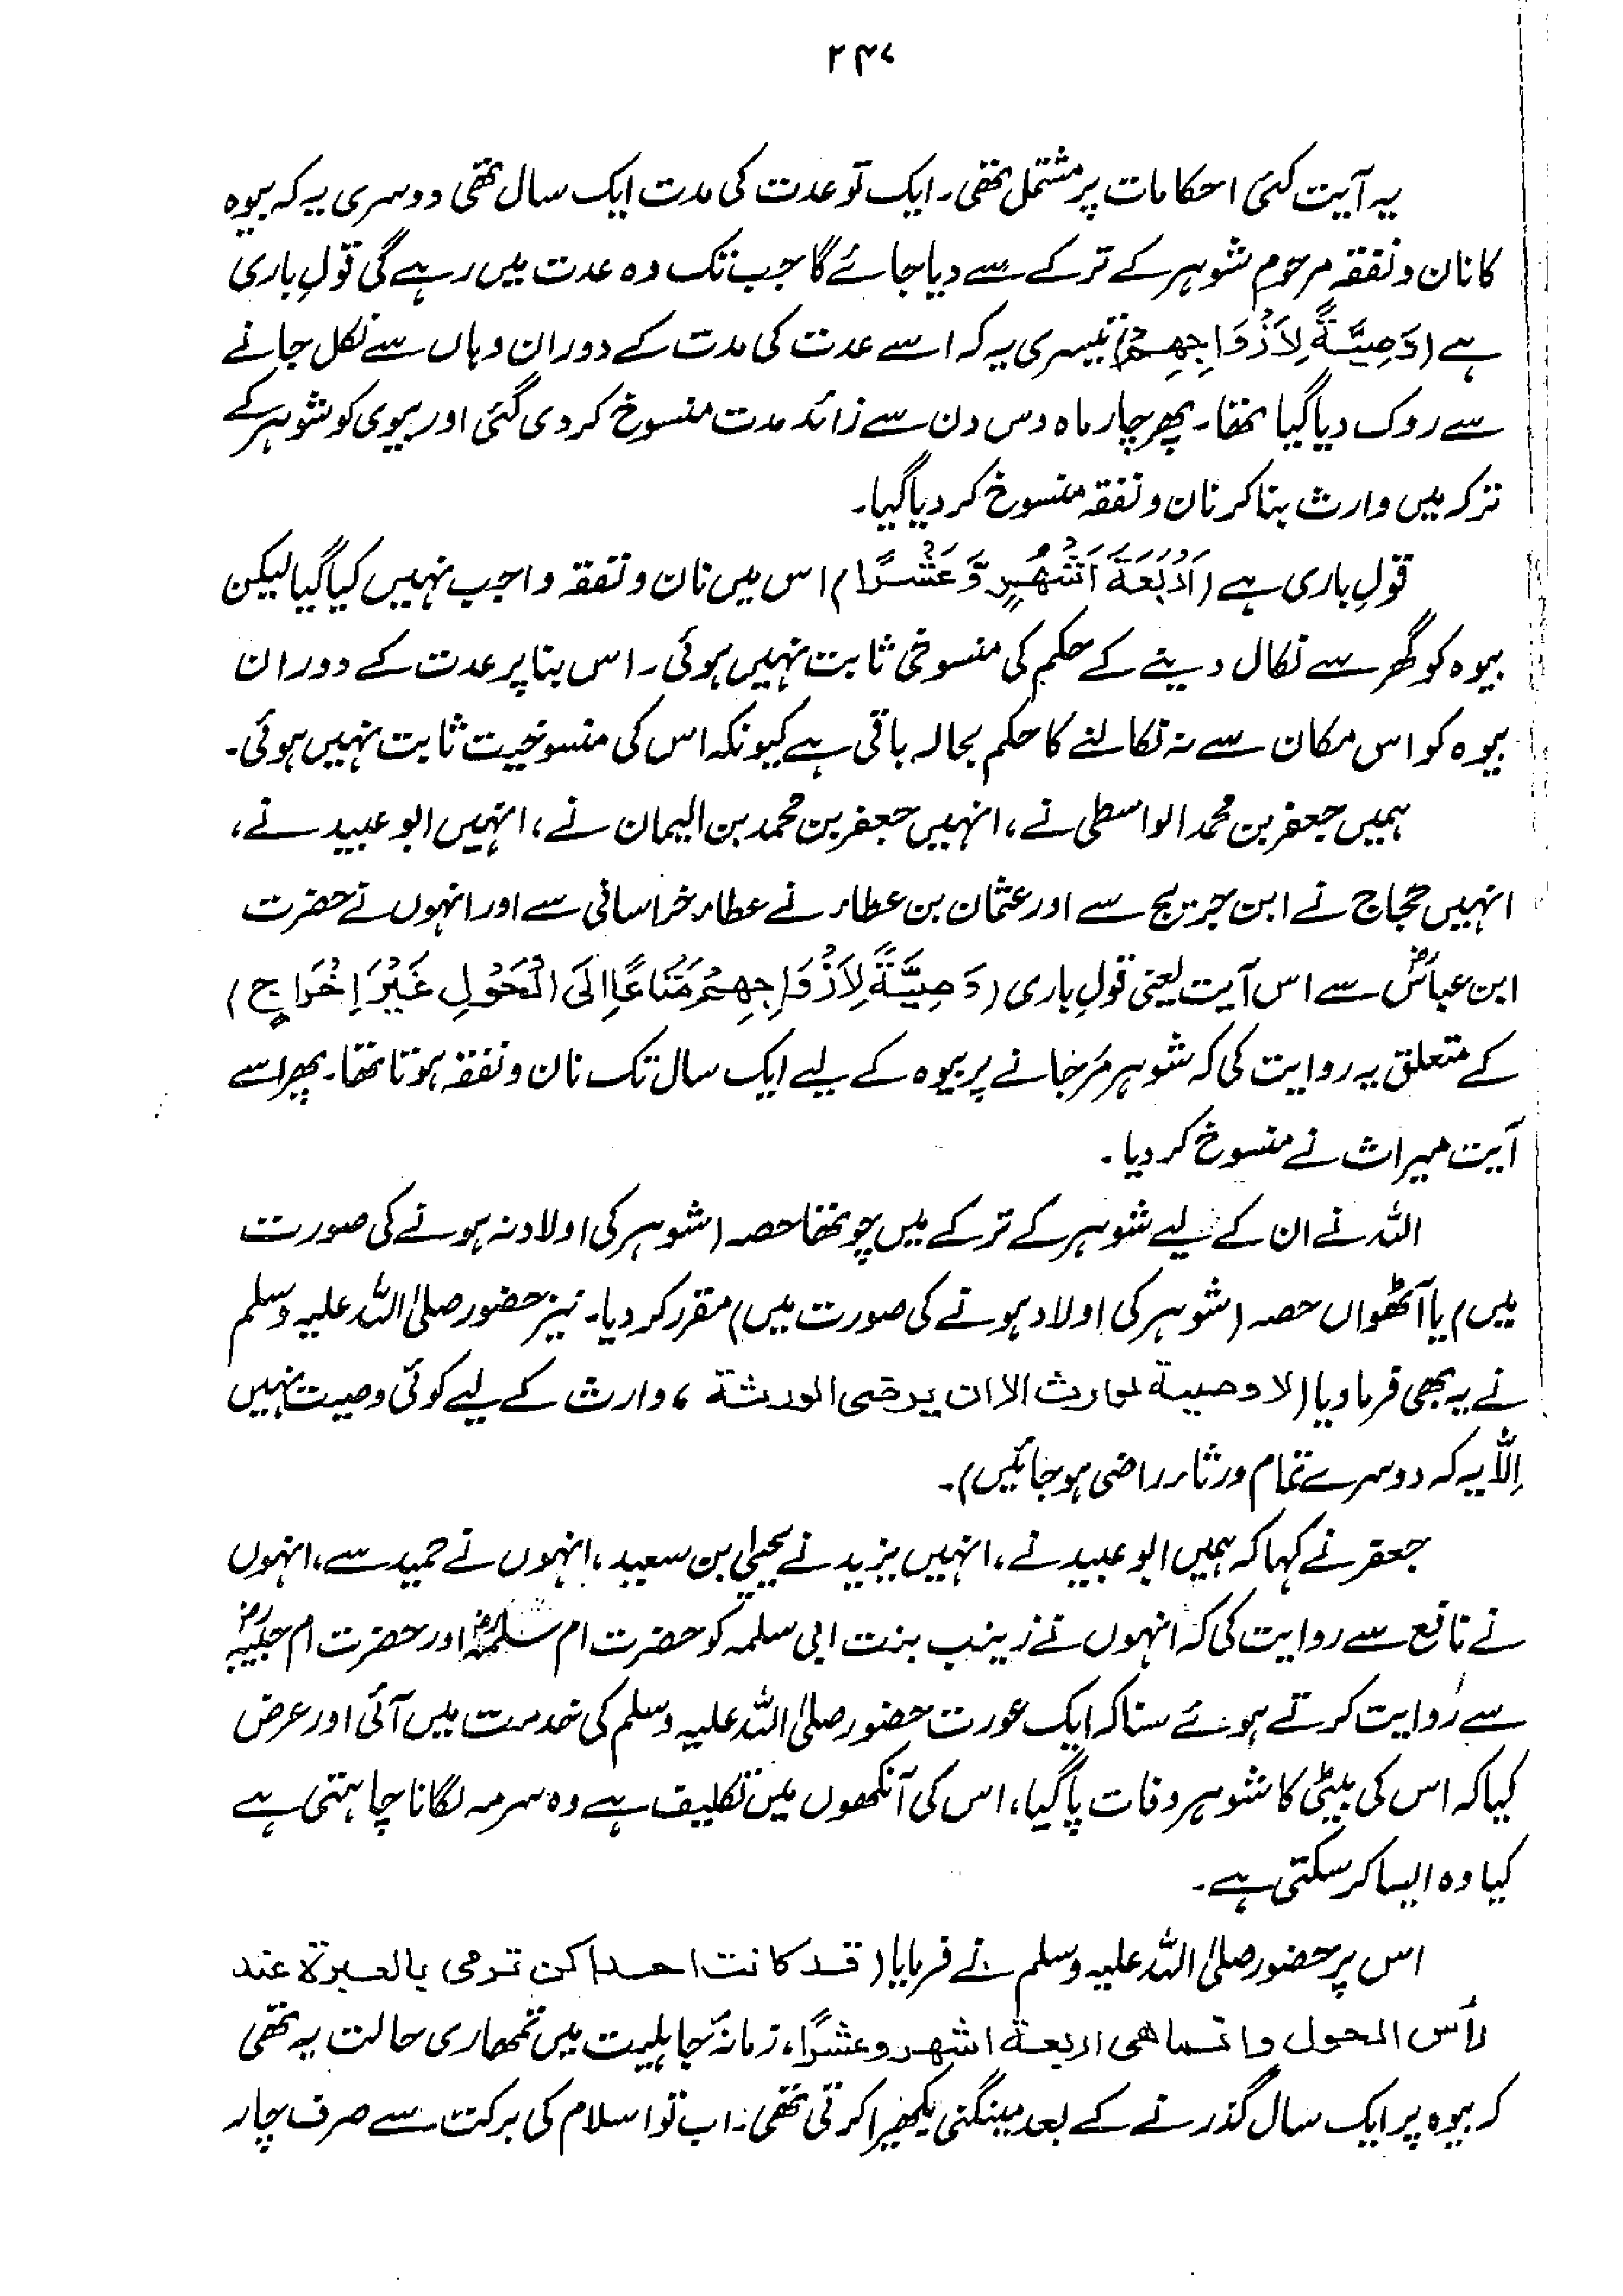 ۲۴۷
یہ آیت کئی احکامات پر مشتمل تھی۔ ایک تو عدت کی مدت ایک سال تھی دوسری یہ کہ بیوہ
کا نان و نفقہ مرحوم شوہر کے ترکے سے دیا جائے گا جب تک وہ عدت میں رہے گی قولِ باری
ہے (وَصِیَّۃً لِاَزْوَاجِھِمْ) تیسری یہ کہ اسے عدت کی مدت کے دوران وہاں سے نکل جانے
سے روک دیا گیا تھا۔ پھر چار ماہ دس دن سے زائد مدت منسوخ کر دی گئی اور بیوی کو شوہر کے
ترکہ میں وارث بنا کر نان و نفقہ منسوخ کر دیا گیا۔
قولِ باری ہے (اَرْبَعَۃَ اَشْھُرٍ وَّعَشْرًا) اس میں نان و نفقہ واجب نہیں کیا گیا لیکن
بیوہ کو گھر سے نکال دینے کے حکم کی منسوخی ثابت نہیں ہوئی۔ اس بنا پر عدت کے دوران
بیوہ کو اس مکان سے نہ نکالنے کا حکم بحالہ باقی ہے کیونکہ اس کی منسوخیت ثابت نہیں ہوئی۔
ہمیں جعفر بن محمد الواسطی نے، انہیں جعفر بن محمد بن الیمان نے، انہیں ابو عبید نے،
انہیں حجاج نے ابن جریج سے اور عثمان بن عطاء نے عطاء خراسانی سے اور انہوں نے حضرت
ابن عباسؓ سے اس آیت یعنی قولِ باری (وَصِیَّۃً لِاَزْوَاجِھِمْ مَّتَاعًا اِلَی الْحَوْلِ غَیْرَ اِخْرَاجٍ)
کے متعلق یہ روایت کی کہ شوہر مَر جانے پر بیوہ کے لیے ایک سال تک نان و نفقہ ہوتا تھا۔ پھر اسے
آیت میراث نے منسوخ کر دیا۔
اللہ نے ان کے لیے شوہر کے ترکے میں چوتھا حصہ (شوہر کی اولاد نہ ہونے کی صورت
میں) یا آٹھواں حصہ (شوہر کی اولاد ہونے کی صورت میں) مقرر کر دیا۔ نیز حضور صلی اللہ علیہ وسلم
نے یہ بھی فرما دیا (لا وصیۃ لوارث الا ان یرضی الورثۃ، وارث کے لیے کوئی وصیت نہیں
اِلّا یہ کہ دوسرے تمام ورثاء راضی ہو جائیں)۔
جعفر نے کہا کہ ہمیں ابو عبید نے، انہیں یزید نے یحییٰ بن سعید، انہوں نے حمید سے، انہوں
نے نافع سے روایت کی کہ انہوں نے زینب بنت ابی سلمہ کو حضرت ام سلمہؓ اور حضرت ام حبیبہؓ
سے روایت کرتے ہوئے سنا کہ ایک عورت حضور صلی اللہ علیہ وسلم کی خدمت میں آئی اور عرض
کیا کہ اس کی بیٹی کا شوہر وفات پا گیا، اس کی آنکھوں میں تکلیف ہے وہ سرمہ لگانا چاہتی ہے
کیا وہ ایسا کر سکتی ہے۔
اس پر حضور صلی اللہ علیہ وسلم نے فرمایا (قد کانت احداکن ترمی بالعبرۃ عند
رأس الحول وانما ھی اربعۃ اشھر وعشرًا، زمانۂ جاہلیت میں تمھاری حالت یہ تھی
کہ بیوہ پر ایک سال گذرنے کے بعد مینگنی بکھیرا کرتی تھی۔ اب تو اسلام کی برکت سے صرف چار